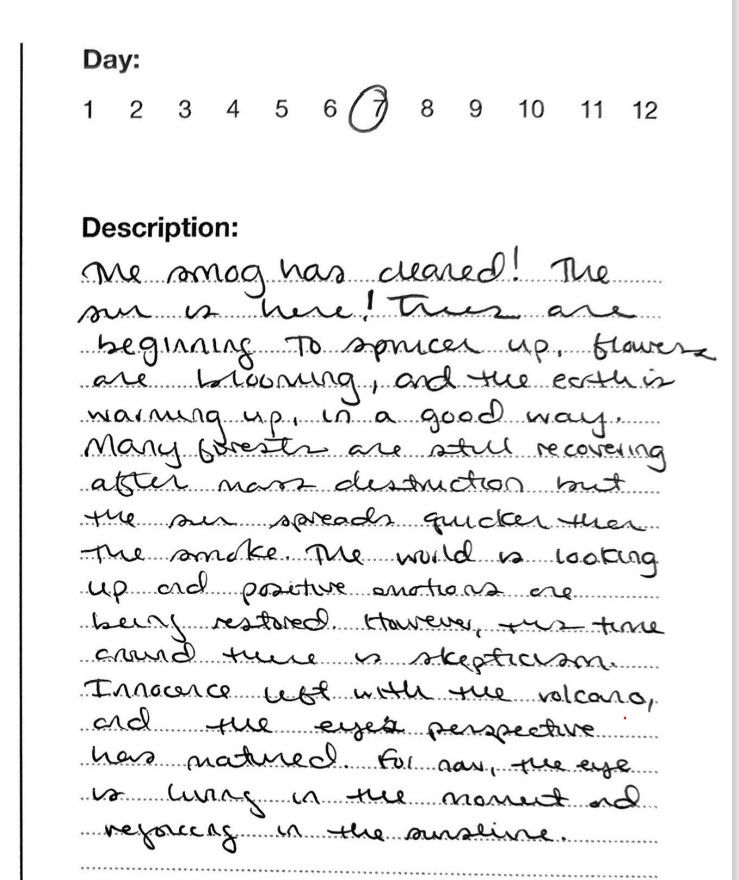 Day:
1 2 3 4 5 6 7 8 9 10 11 12
Description:
The smog has cleared! The
sun is here! Trees are
beginning to spruce up, flowers
are blooming, and the earth is
warming up, in a good way.
Many forests are still recovering
after mass destruction but
the sun spreads quicker then
the smoke. The world is looking
up and positive emotions are
being restored. However, this time
around there is skepticism.
Innocence left with the volcano,
and the eye's perspective
has matured. For now, the eye
is living in the moment and
rejoicing in the sunshine.